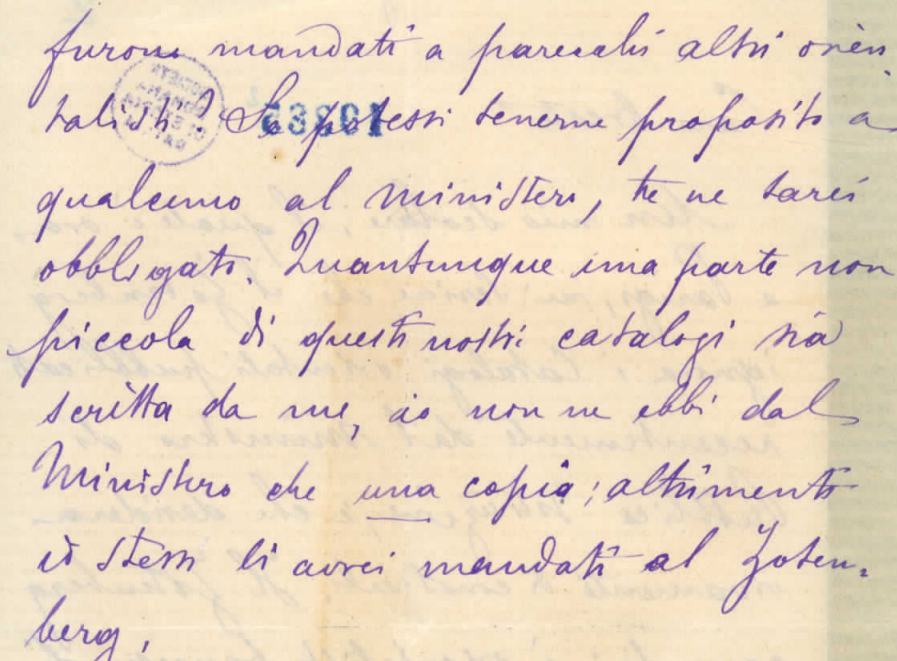 furono mandati a parecchi altri orien
talisti? Se potessi tenerne proposito a
qualcuno al ministero, te ne sarei
obbligato. Quantunque una parte non
piccola di questi nostri catalogi sia
scritta da me, io non ne ebbi dal
Ministero che una copia; altrimenti
io stesso li avrei mandati al Zoten=
berg.